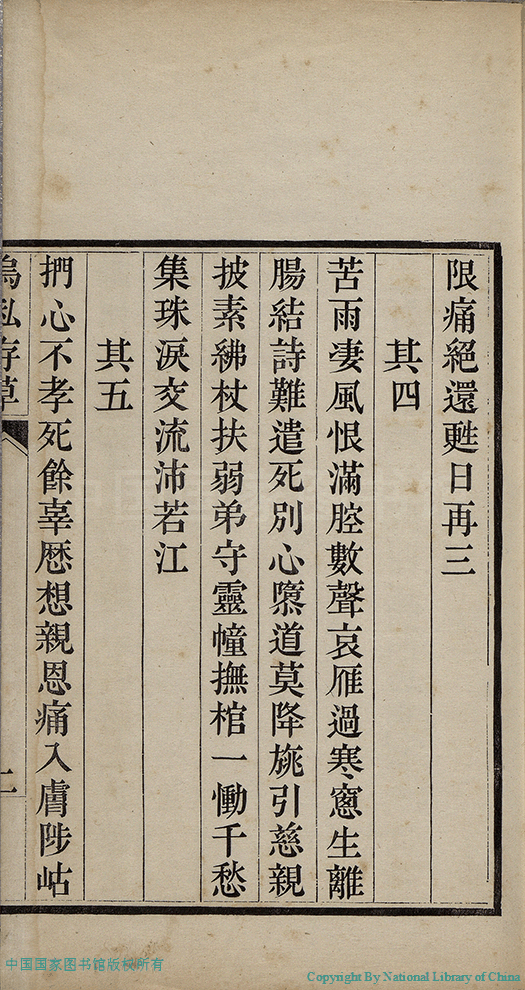 限痛絕還甦日再三
其四
苦雨淒風恨滿腔數聲哀雁過寒窻生離
腸結詩難遣死別心隳道莫降旐引慈親
披素紼杖扶弱弟守靈幢撫棺一慟千愁
集珠淚交流沛若江
其五
捫心不孝死餘辜厯想親恩痛入膚陟岵
烏私存草
二
中国国家图书馆版权所有
Copyright By National Library of China